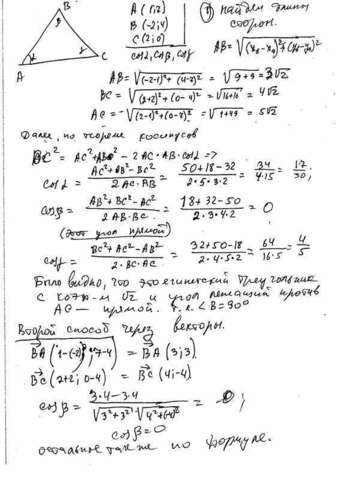 B
A
C
A (1;7)
B (-2;4)
C (2;0)
cosα, cosβ, cosγ
① Найдем длины
сторон.
AB = √(x₂-x₁)²+(y₂-y₁)²
AB = √(-2-1)²+(4-7)² = √9+9 = 3√2
BC = √(2+2)²+(0-4)² = √16+16 = 4√2
AC = √(2-1)²+(0-7)² = √1+49 = 5√2
Далее, по теореме косинусов
BC² = AC²+AB² - 2AC·AB·cosα =>
cosα = AC²+AB²-BC² / 2AC·AB = 50+18-32 / 2·5·3·2 = 34 / 4·15 = 17 / 30;
cosβ = AB²+BC²-AC² / 2AB·BC = 18+32-50 / 2·3·4·2 = 0
(этот угол прямой)
cosγ = BC²+AC²-AB² / 2·BC·AC = 32+50-18 / 2·4·5·2 = 64 / 16·5 = 4 / 5
Было видно, что это египетский треугольник
с коэф-м √2 и угол лежащий против
AC — прямой. т.к. ∠B=90°
Второй способ через векторы.
BA (1-(-2); 7-4) = BA (3;3)
BC (2+2; 0-4) = BC (4;-4)
cosβ = 3·4-3·4 / √3²+3² √4²+(-4)² = 0;
cosβ=0
остальное так же по формуле.